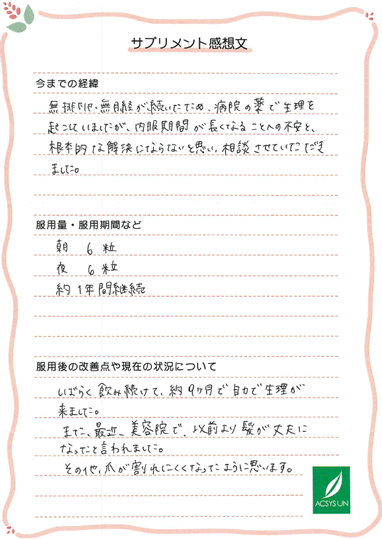 サプリメント感想文
今までの経緯
無排卵、無月経が続いたため、病院の薬で生理を
起こしていましたが、内服期間が長くなることへの不安と、
根本的な解決にならないと思い、相談させていただき
ました。
服用量・服用期間など
朝 6粒
夜 6粒
約1年間継続
服用後の改善点や現在の状況について
しばらく飲み続けて、約9ヶ月で自力で生理が
来ました。
また、最近、美容院で、以前より髪が丈夫に
なったと言われました。
その他、爪が割れにくくなったように思います。
ACSYS UN